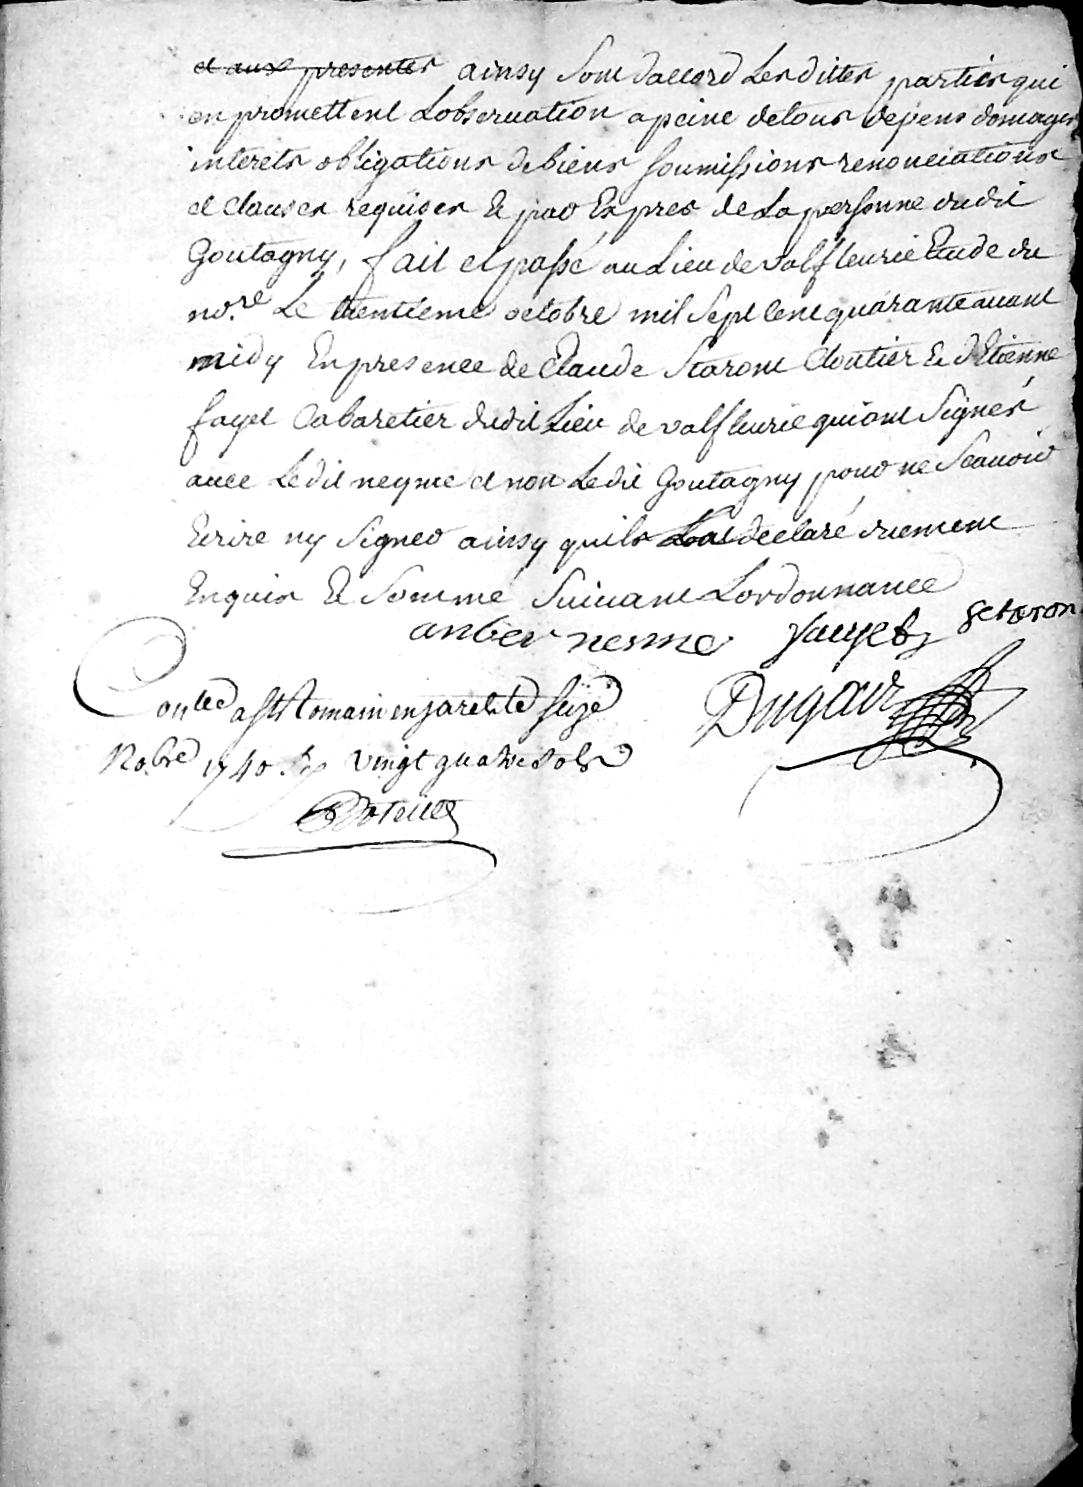 et aux presentes ainsy sont daccord lesdittes parties qui
en promettent lobservation a peine de tous depens domages
interets obligations de biens soumissions renonciations
et clauses requises & par expres de la personne dudit
Goutagny, fait et passé au lieu de valfleurie Etude du
no.re le trentieme octobre mil sept cent quarante avant
midy En presence de Claude Staront Cloutier & d'Etienne
fayet Cabaretier dudit lieu de valfleurie qui ont signés
avec ledit neyme et non ledit Goutagny pour ne scavoir
Ecrire ny signer ainsy quils declaré duement
Enquis & sommé suivant lordonnance
anber nesme fayet Setaron
Dugair
Contled a St Romain en jarets le seize
No.bre 1740. vingt quatre sols